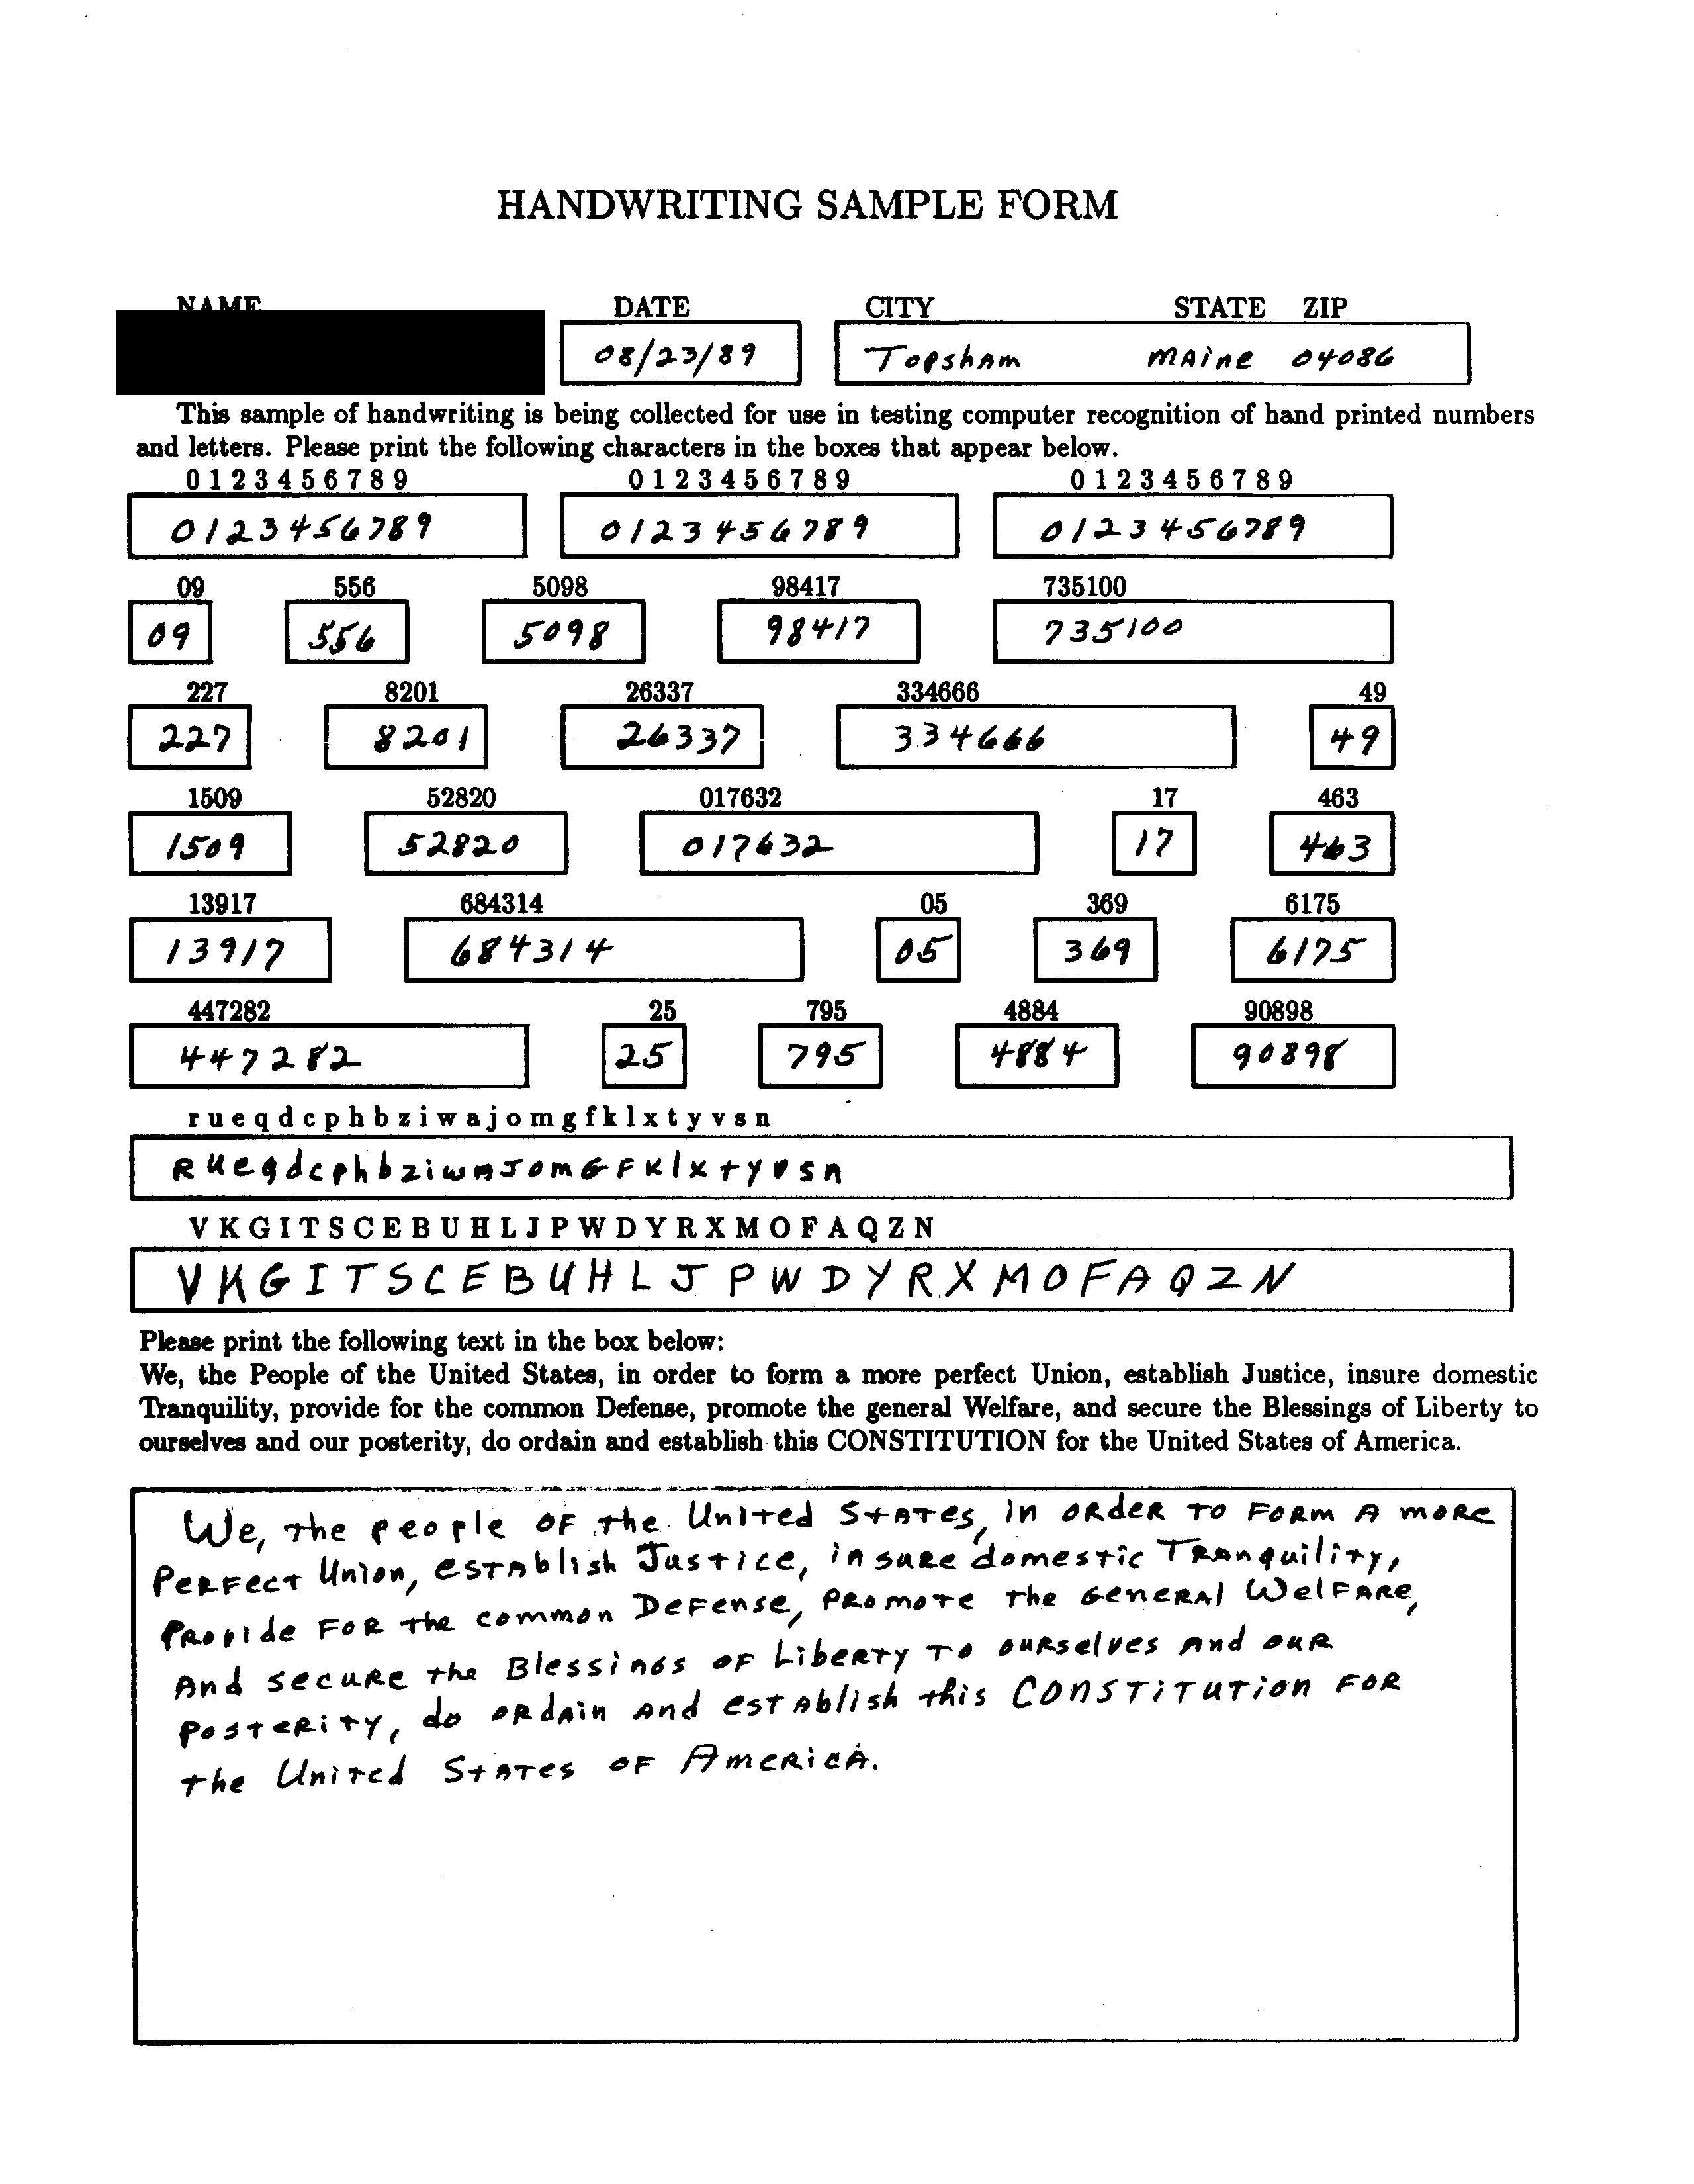 HANDWRITING SAMPLE FORM
NAME DATE CITY STATE ZIP
08/23/89 Topsham MAine 04086
This sample of handwriting is being collected for use in testing computer recognition of hand printed numbers
and letters. Please print the following characters in the boxes that appear below.
0 1 2 3 4 5 6 7 8 9 0 1 2 3 4 5 6 7 8 9 0 1 2 3 4 5 6 7 8 9
0123456789 0123456789 0123456789
09 556 5098 98417 735100
09 556 5098 98417 735100
227 8201 26337 334666 49
227 8201 26337 334666 49
1509 52820 017632 17 463
1509 52820 017632 17 463
13917 684314 05 369 6175
13917 684314 05 369 6175
447282 25 795 4884 90898
447282 25 795 4884 90898
r u e q d c p h b z i w a j o m g f k l x t y v s n
RueqdcphbziwAJomGFKlxtyvsn
V K G I T S C E B U H L J P W D Y R X M O F A Q Z N
V K G I T S C E B U H L J P W D Y R X M O F A Q Z N
Please print the following text in the box below:
We, the People of the United States, in order to form a more perfect Union, establish Justice, insure domestic
Tranquility, provide for the common Defense, promote the general Welfare, and secure the Blessings of Liberty to
ourselves and our posterity, do ordain and establish this CONSTITUTION for the United States of America.
We, the people oF the United StATes, in oRdeR To FoRm A moRe
PeRFect Union, esTAblish Justice, insuRe domestic TRAnquiliTy,
PRovide FoR the common DeFense, PRomote the GeneRAl WelFARe,
And secuRe the BlessinGs oF LibeRTy To ouRselves And ouR
PosteRiTy, do oRdAin And esTAblish this ConsTiTuTion FoR
the UniTed StATes oF AmeRicA.